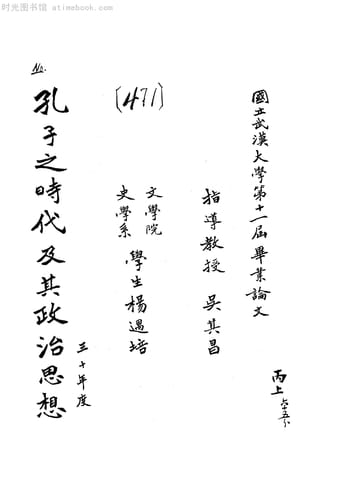 时光图书馆 - atimebook.com
國立武漢大學第十一屆畢業論文
丙上
指導教授 吳其昌
文學院
史學系
學生楊遇培
(471)
No.
孔子之時代及其政治思想
三十年度